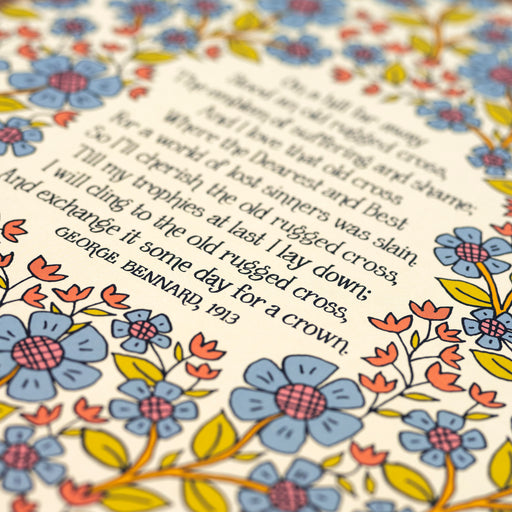 On a hill far away
Stood an old rugged cross,
The emblem of suffering and shame;
And I love that old cross
Where the Dearest and Best
for a world of lost sinners was slain.
So I'll cherish the old rugged cross,
Till my trophies at last I lay down;
I will cling to the old rugged cross,
And exchange it some day for a crown.
GEORGE BENNARD, 1913